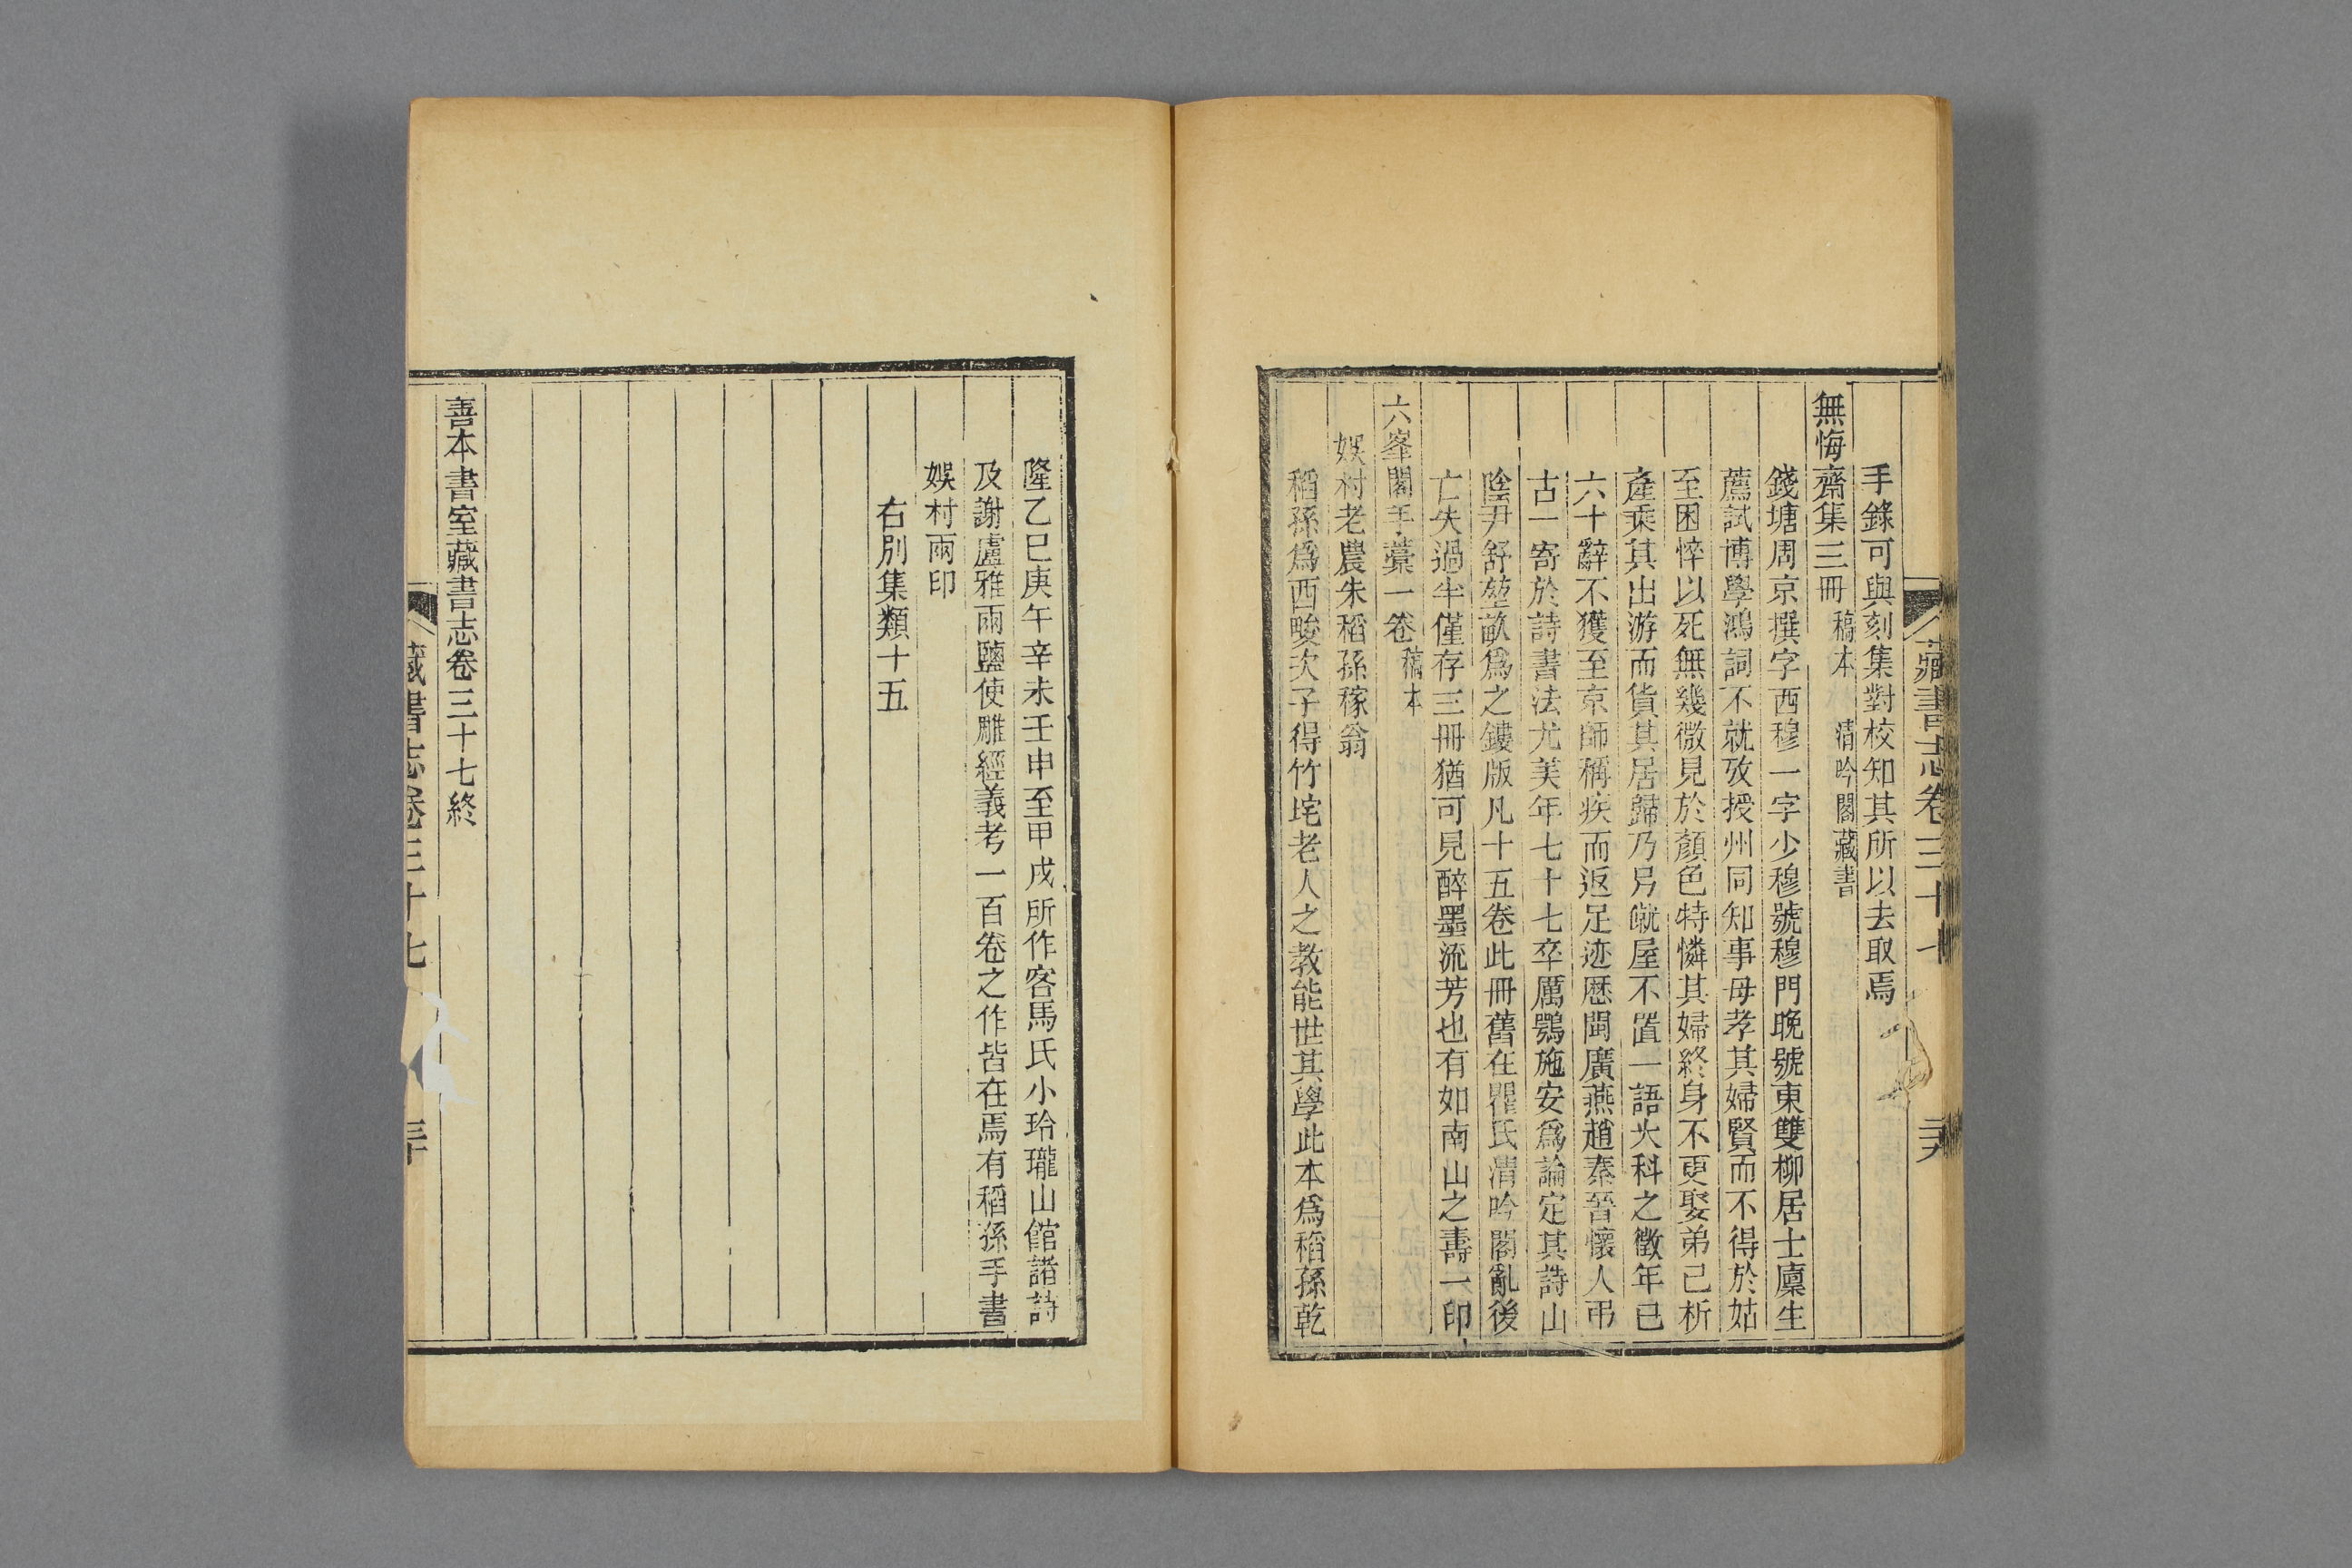 藏書志卷三十七
手錄可與刻集對校知其所以去取焉
無悔齋集三冊 稿本 清吟閣藏書
錢塘周京撰字西穆一字少穆號穆門晚號東雙柳居士廩生
薦試博學鴻詞不就攷授州同知事母孝其婦賢而不得於姑
至困悴以死無幾微見於顏色特憐其婦終身不更娶弟已析
產乘其出游而貨其居歸乃另僦屋不置一語大科之徵年已
六十辭不獲至京師稱疾而返足迹歷閩廣燕趙秦晉懷人弔
古一寄於詩書法尤美年七十七卒厲鶚施安爲論定其詩山
陰尹舒堃歃爲之鏤版凡十五卷此冊舊在瞿氏清吟閣亂後
亡失過半僅存三冊猶可見醉墨流芳也有如南山之壽一印
六峯閣手藁一卷 稿本
娛村老農朱稻孫稼翁
稻孫爲西畯次子得竹垞老人之教能世其學此本爲稻孫乾
隆乙巳庚午辛未壬申至甲戌所作客馬氏小玲瓏山館諸詩
及謝盧雅雨鹽使雕經義考一百卷之作皆在焉有稻孫手書
娛村兩印
右別集類十五
善本書室藏書志卷三十七終
藏書志卷三十七
三十